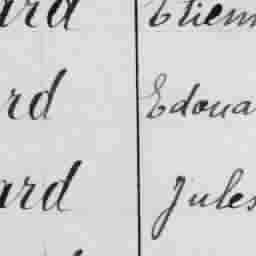 ard Etienn
rd Edoua
ard Jules